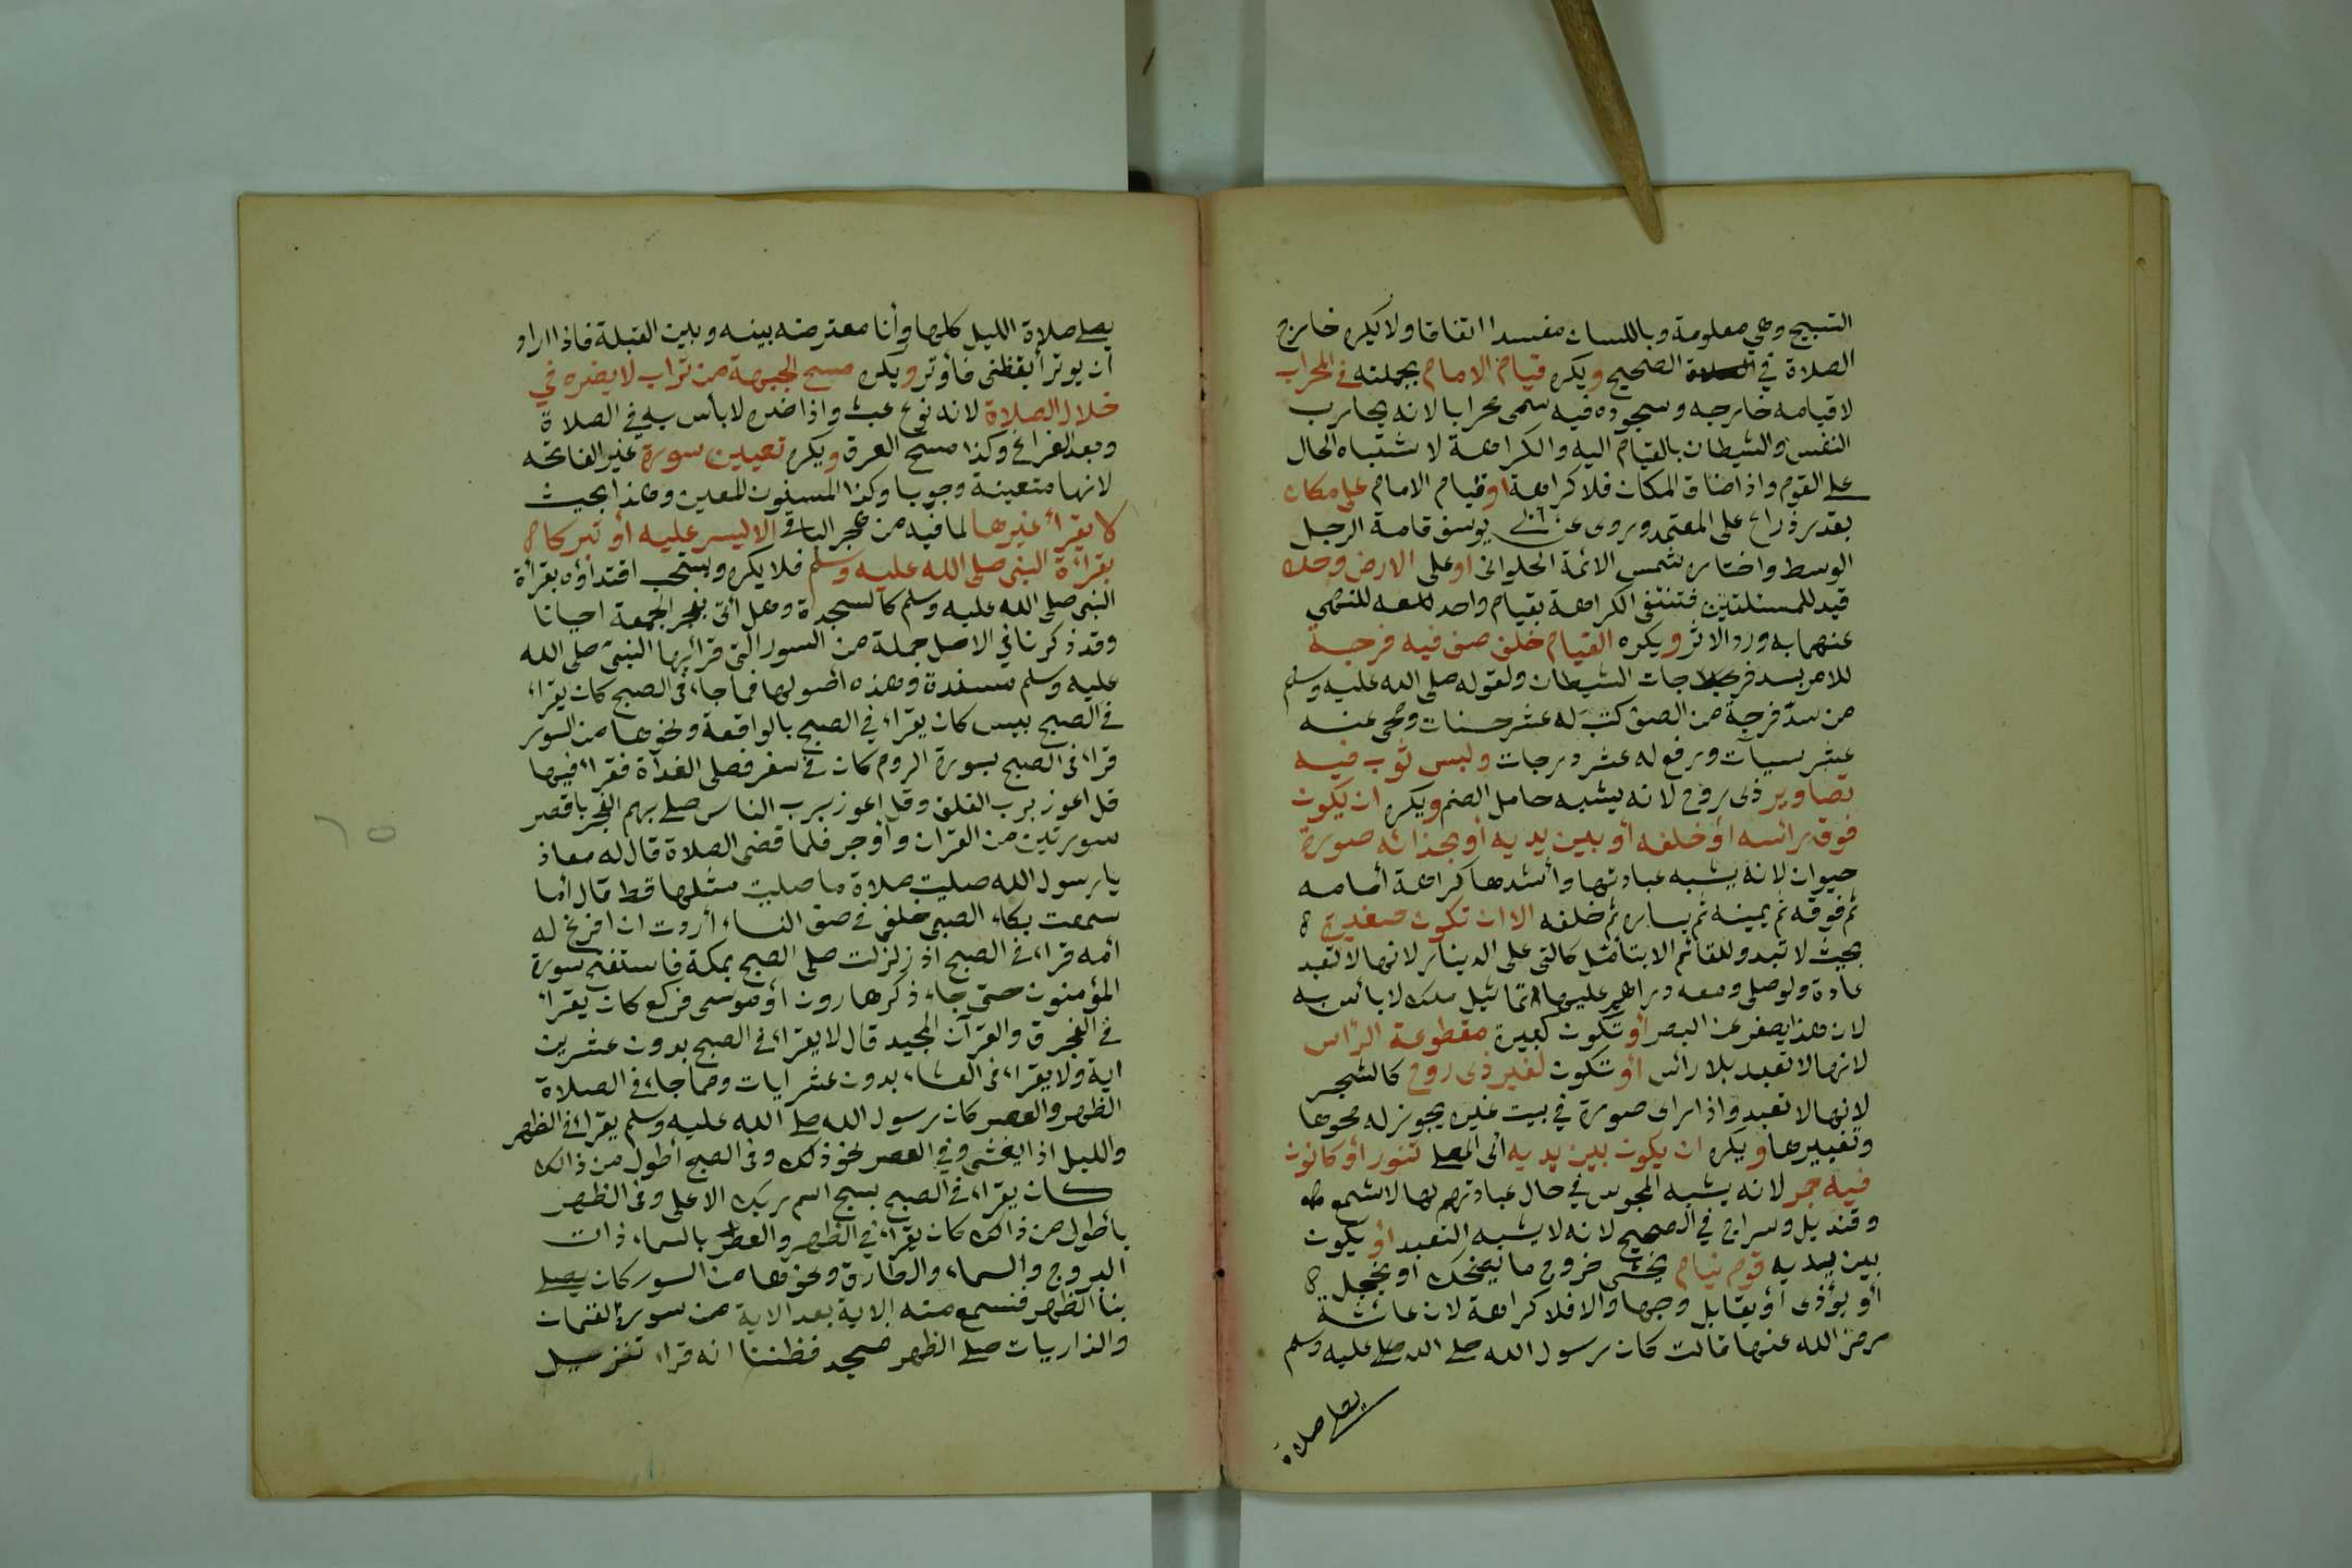 التسبيح وهي معلومة وباللسان مفسد اتفاقا ولا يكره خارج
الصلاة في الصحيح ويكره قيام الامام بجملته في المحراب
لا قيامه خارجه وسجوده فيه سمى محرابا لانه يحارب
النفس والشيطان بالقيام اليه والكراهة لاشتباه الحال
على القوم واذا ضاق المكان فلا كراهة او قيام الامام على مكان
بقدر ذراع على المعتمد وروى عن ابى يوسف قامة الرجل
الوسط واختاره شمس الائمة الحلوانى او على الارض وحده
قيد للمسئلتين فتنتفى الكراهة بقيام واحد معه للنهى
عنهما به ورد الاثر ويكره القيام خلف صف فيه فرجة
للامر بسد فرجات الشيطان ولقوله صلى الله عليه وسلم
من سدّ فرجة من الصف كتبَ له عشر حسنات ومحى عنه
عشر سيآت ورفع له عشر درجات ولبس ثوب فيه
تصاوير ذى روح لانه يشبه حامل الصنم ويكره ان يكون
فوق رائسه أو خلفه أو بين يديه أو بحذائه صورة
حيوان لانه يشبه عبادتها وأشدها كراهة أمامه
ثم فوقه ثم يمينه ثم يساره ثم خلفه الا ان تكون صغيرة
بحيث لا تبدو للقائم الا بتأمل كالتى على الدينار لانها لا تعبد
عادة ولو صلى ومعه دراهم عليها تماثيل ملك لا بائس به
لان هذا يصغر عن البصر أو تكون كبيرة مقطوعة الرّاس
لانها لا تعبد بلا رائس أو تكون لغير ذى روح كالشجر
لانها لا تعبد واذا راى صورة في بيت غيره يجوز له محوها
وتغييرها ويكره ان يكون بين يديه اى المصلى تنور أو كانون
فيه جمر لانه يشبه المجوس في حال عبادتهم لها لا شمع
وقنديل وسراج في الصحيح لانه لا يشبه التعبد أو يكون
بين يديه قوم نيام يخشى خروج ما يضحك أو يخجل
أو يؤذى أو يقابل وجها والا فلا كراهة لان عائشة
رضى الله عنها قالت كان رسول الله صلى الله عليه وسلم
يصلى صلاة
يصلى صلاة الليل كلها وأنا معترضه بينه وبين القبلة فاذا اراد
أن يوتر أيقظنى فأوتر ويكره مسح الجبهة من تراب لا يضره في
خلال الصلاة لانه نوع عبث واذا ضره لا بأس به في الصلاة
وبعد الفراغ وكذا مسح العرق ويكره تعيين سورة غير الفاتحه
لانها متعينة وجوبا وكذا المسنون للمعين وهذا بحيث
لا يقرأ غيرها لما فيه من هجر الباقى الا ليسر عليه أو تبركا
بقراءة النبى صلى الله عليه وسلم فلا يكره ويستحب اقتداؤه بقرأة
النبى صلى الله عليه وسلم كالسجدة وهل أتى بفجر الجمعة احيانا
وقد ذكرنا في الاصل جملة من السور التى قرائها النبىّ صلى الله
عليه وسلم مسندة وهذه اصولها فما جاء فى الصبح كان يقراء
في الصبح بيس كان يقراء في الصبح بالواقعة ونحوها من السور
قراء في الصبح بسورة الروم كان في سفر فصلى الغداة فقراء فيها
قل اعوز برب الفلق وقل اعوز برب الناس صلى بهم الفجر باقصر
سورتين من القران وأوجز فلما قضى الصلاة قال له معاذ
يا رسول الله صليت صلاة ما صليت مثلها قط قال أما
سمعت بكاء الصبى خلفى في صف النساء أردت ان افرغ له
أمه قراء في الصبح اذ زلزلت صلى الصبح بمكة فاستفتح سورة
المؤمنون حتى جاء ذكر هارون أو موسى فركع كان يقراء
في الفجر ق والقرآن المجيد قال لا يقراء في الصبح بدون عشرين
اية ولا يقراء في العشاء بدون عشر ايات ومما جاء في الصلاة
الظهر والعصر كان رسول الله صلى الله عليه وسلم يقراء في الظهر
والليل اذا يغشى وفي العصر نحو ذلك وفى الصبح أطول من ذالك
كان يقراء في الصبح بسبح اسم ربك الاعلى وفى الظهر
بأطول من ذالك كان يقراء في الظهر والعصر بالسماء ذات
البروج والسماء والطارق ونحوها من السور كان يصلى
بنا الظهر فنسمع منه الاية بعد الاية من سورة لقمان
والذاريات صلى الظهر فسجد فظننا انه قراء تنزيل
٦٥